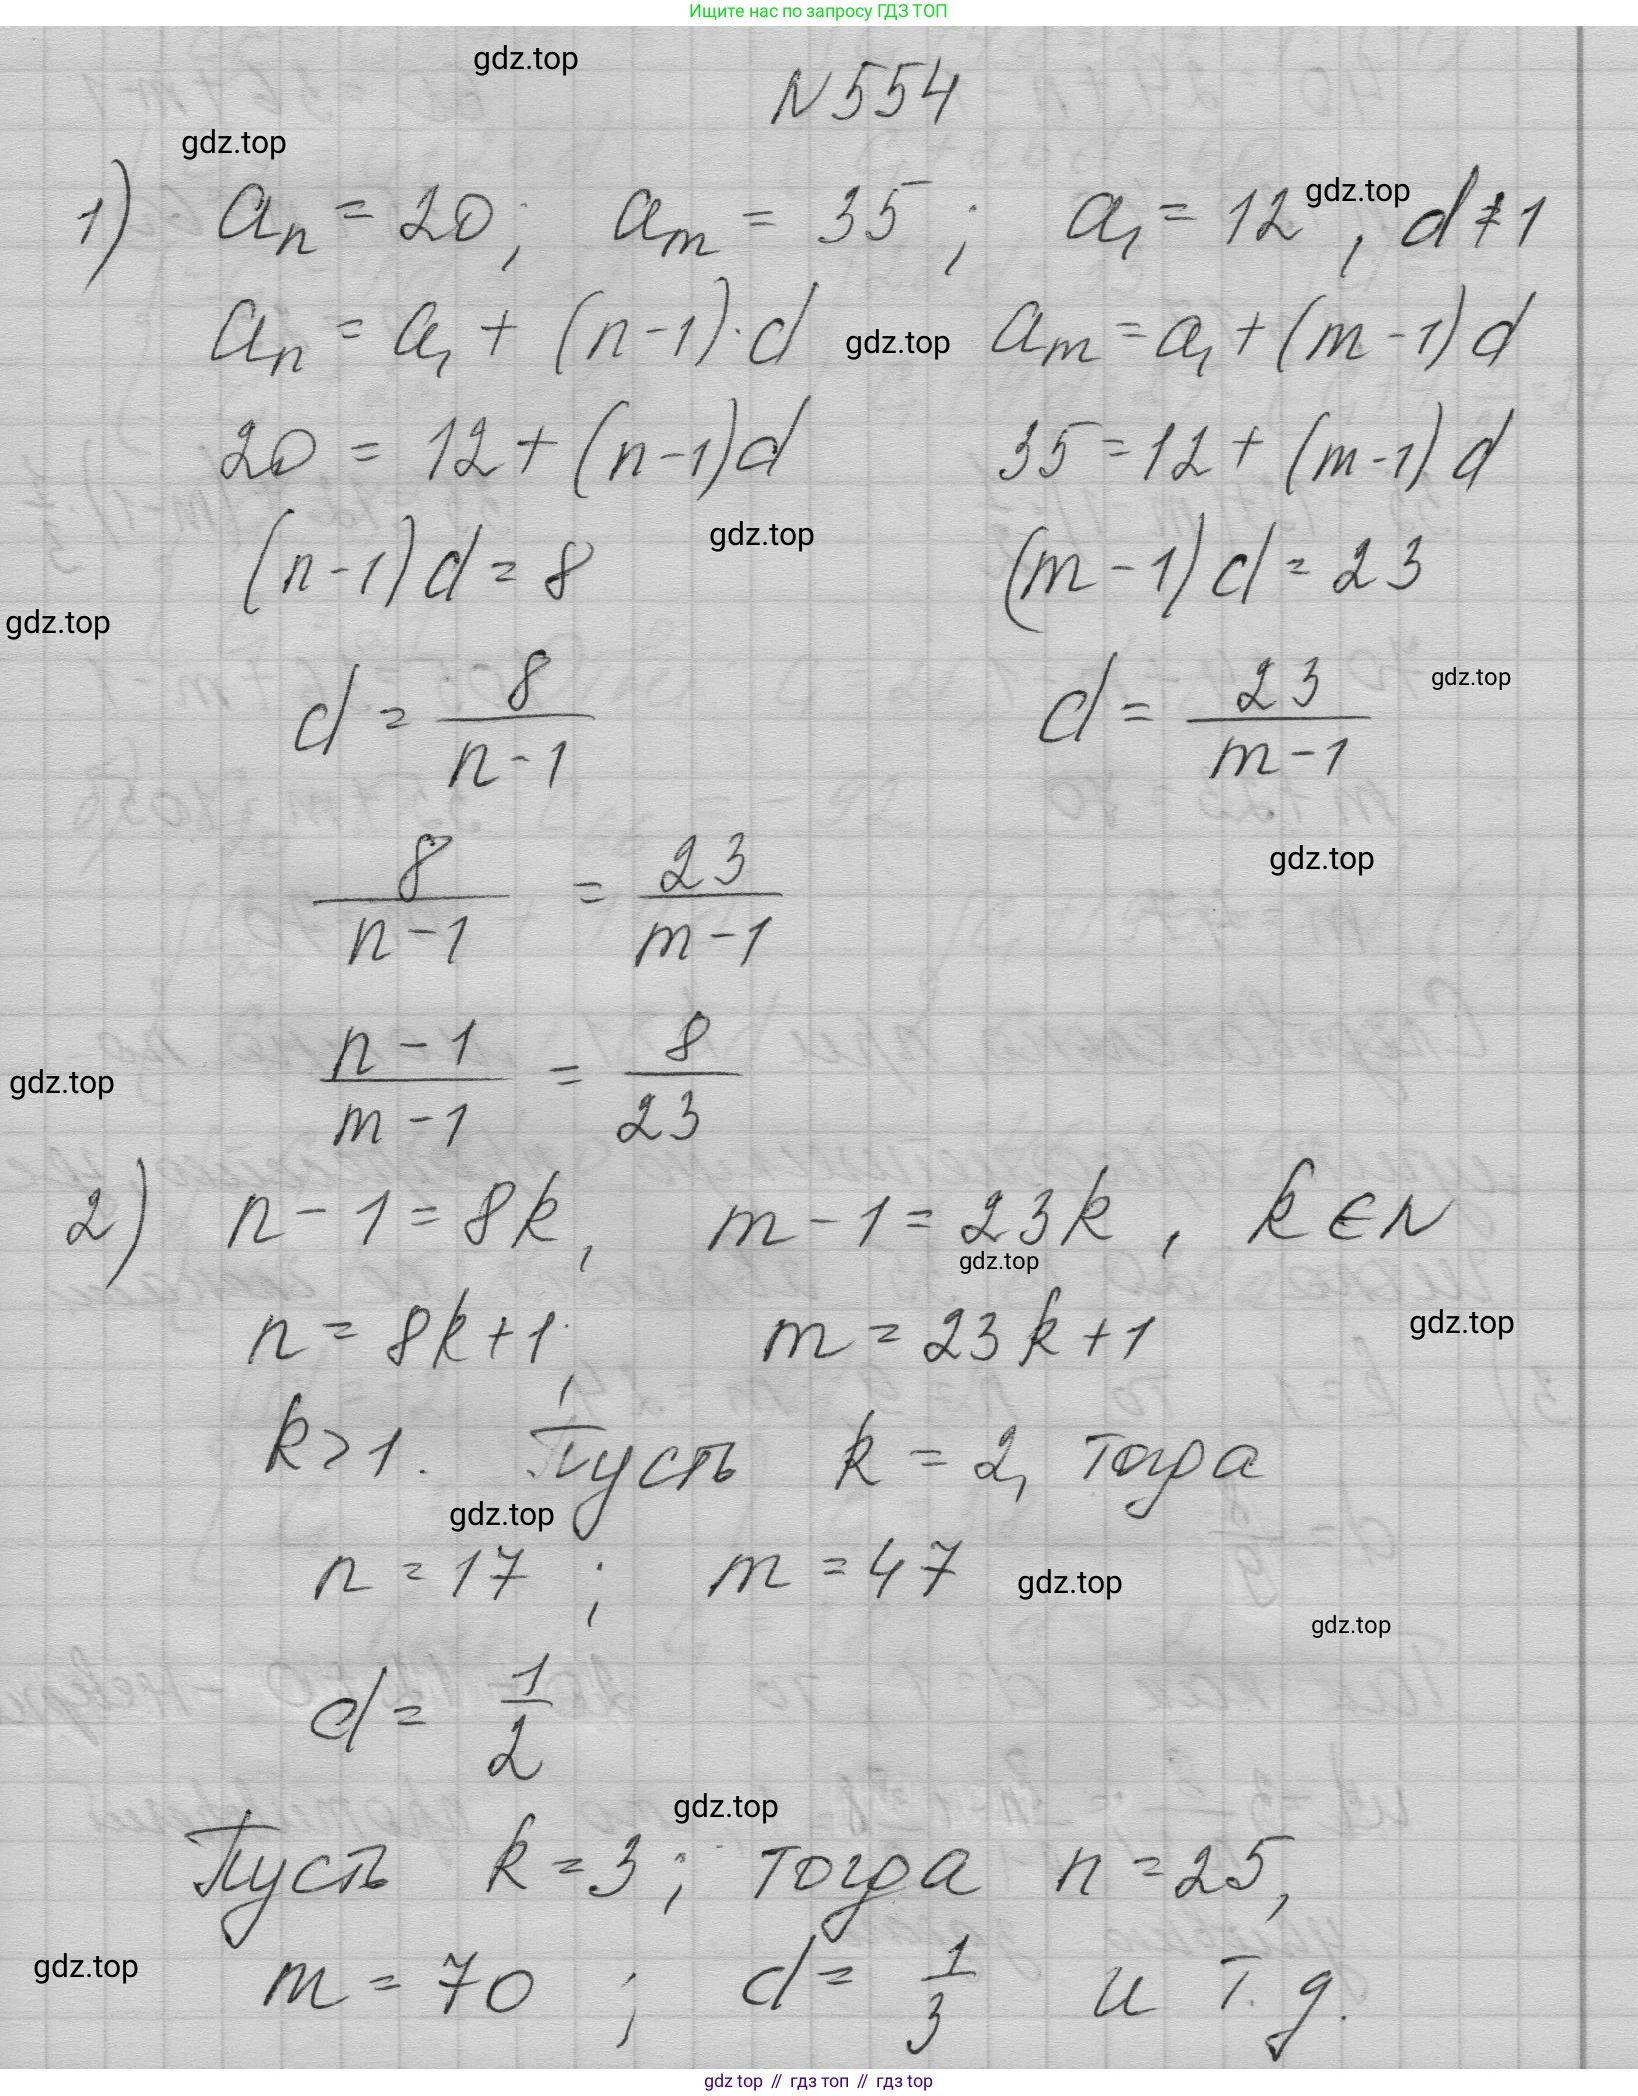 Ищите нас по запросу ГДЗ ТОП
gdz.top
N 554
gdz.top
1) aₙ = 20; aₘ = 35; a₁ = 12, d ≠ 1
gdz.top
aₙ = a₁ + (n-1)·d aₘ = a₁ + (m-1)d
gdz.top
20 = 12 + (n-1)d 35 = 12 + (m-1)d
gdz.top
(n-1)d = 8 (m-1)d = 23
gdz.top
d = 8/(n-1) d = 23/(m-1)
gdz.top
8/(n-1) = 23/(m-1)
gdz.top
(n-1)/(m-1) = 8/23
gdz.top
2) n-1 = 8k, m-1 = 23k, k ∈ N
gdz.top
n = 8k+1; m = 23k+1
gdz.top
k > 1. Пусть k = 2, тогда
gdz.top
n = 17; m = 47
gdz.top
gdz.top
d = 1/2
gdz.top
Пусть k = 3; тогда n = 25,
gdz.top
m = 70; d = 1/3 и т.д.
gdz top // гдз топ // гдз top